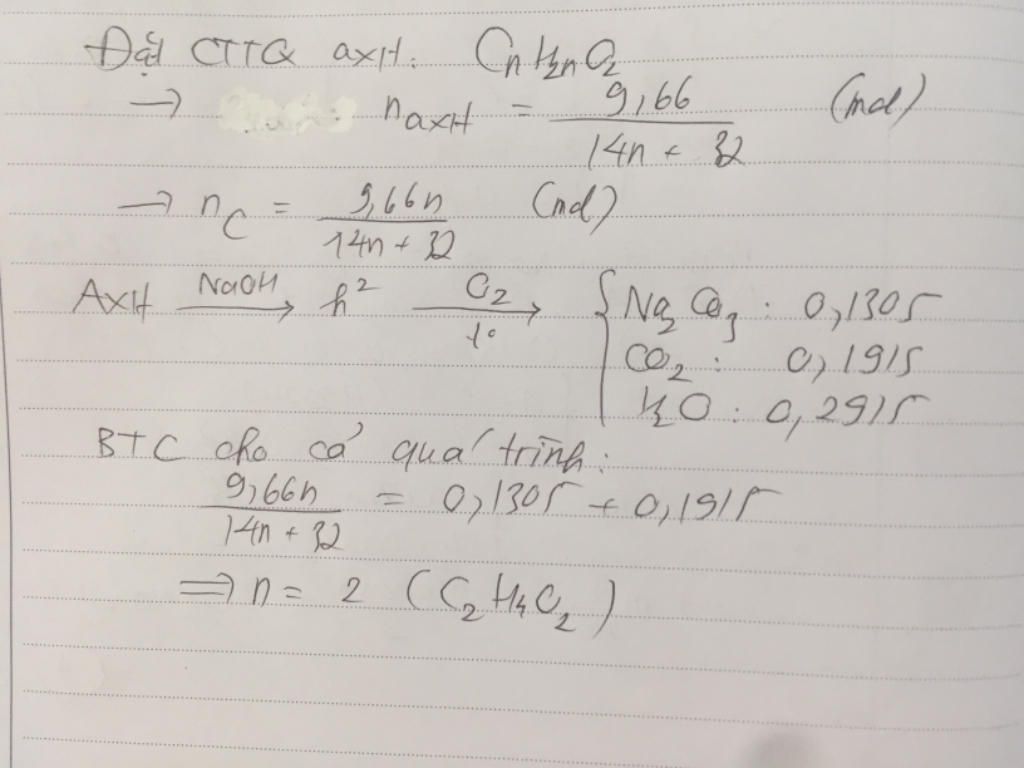 Đặt CTTQ axH: CnH2nO2
→ n axH = 9,66 / (14n + 32) (mol)
→ nC = 9,66n / (14n + 32) (mol)
AxH —NaOH→ h² —O2, t°→ { Na2CO3 : 0,1305
CO2 : 0,1915
H2O : 0,2915
BTC cho cả quá trình:
9,66n / (14n + 32) = 0,1305 + 0,1915
⇒ n = 2 (C2H4O2)